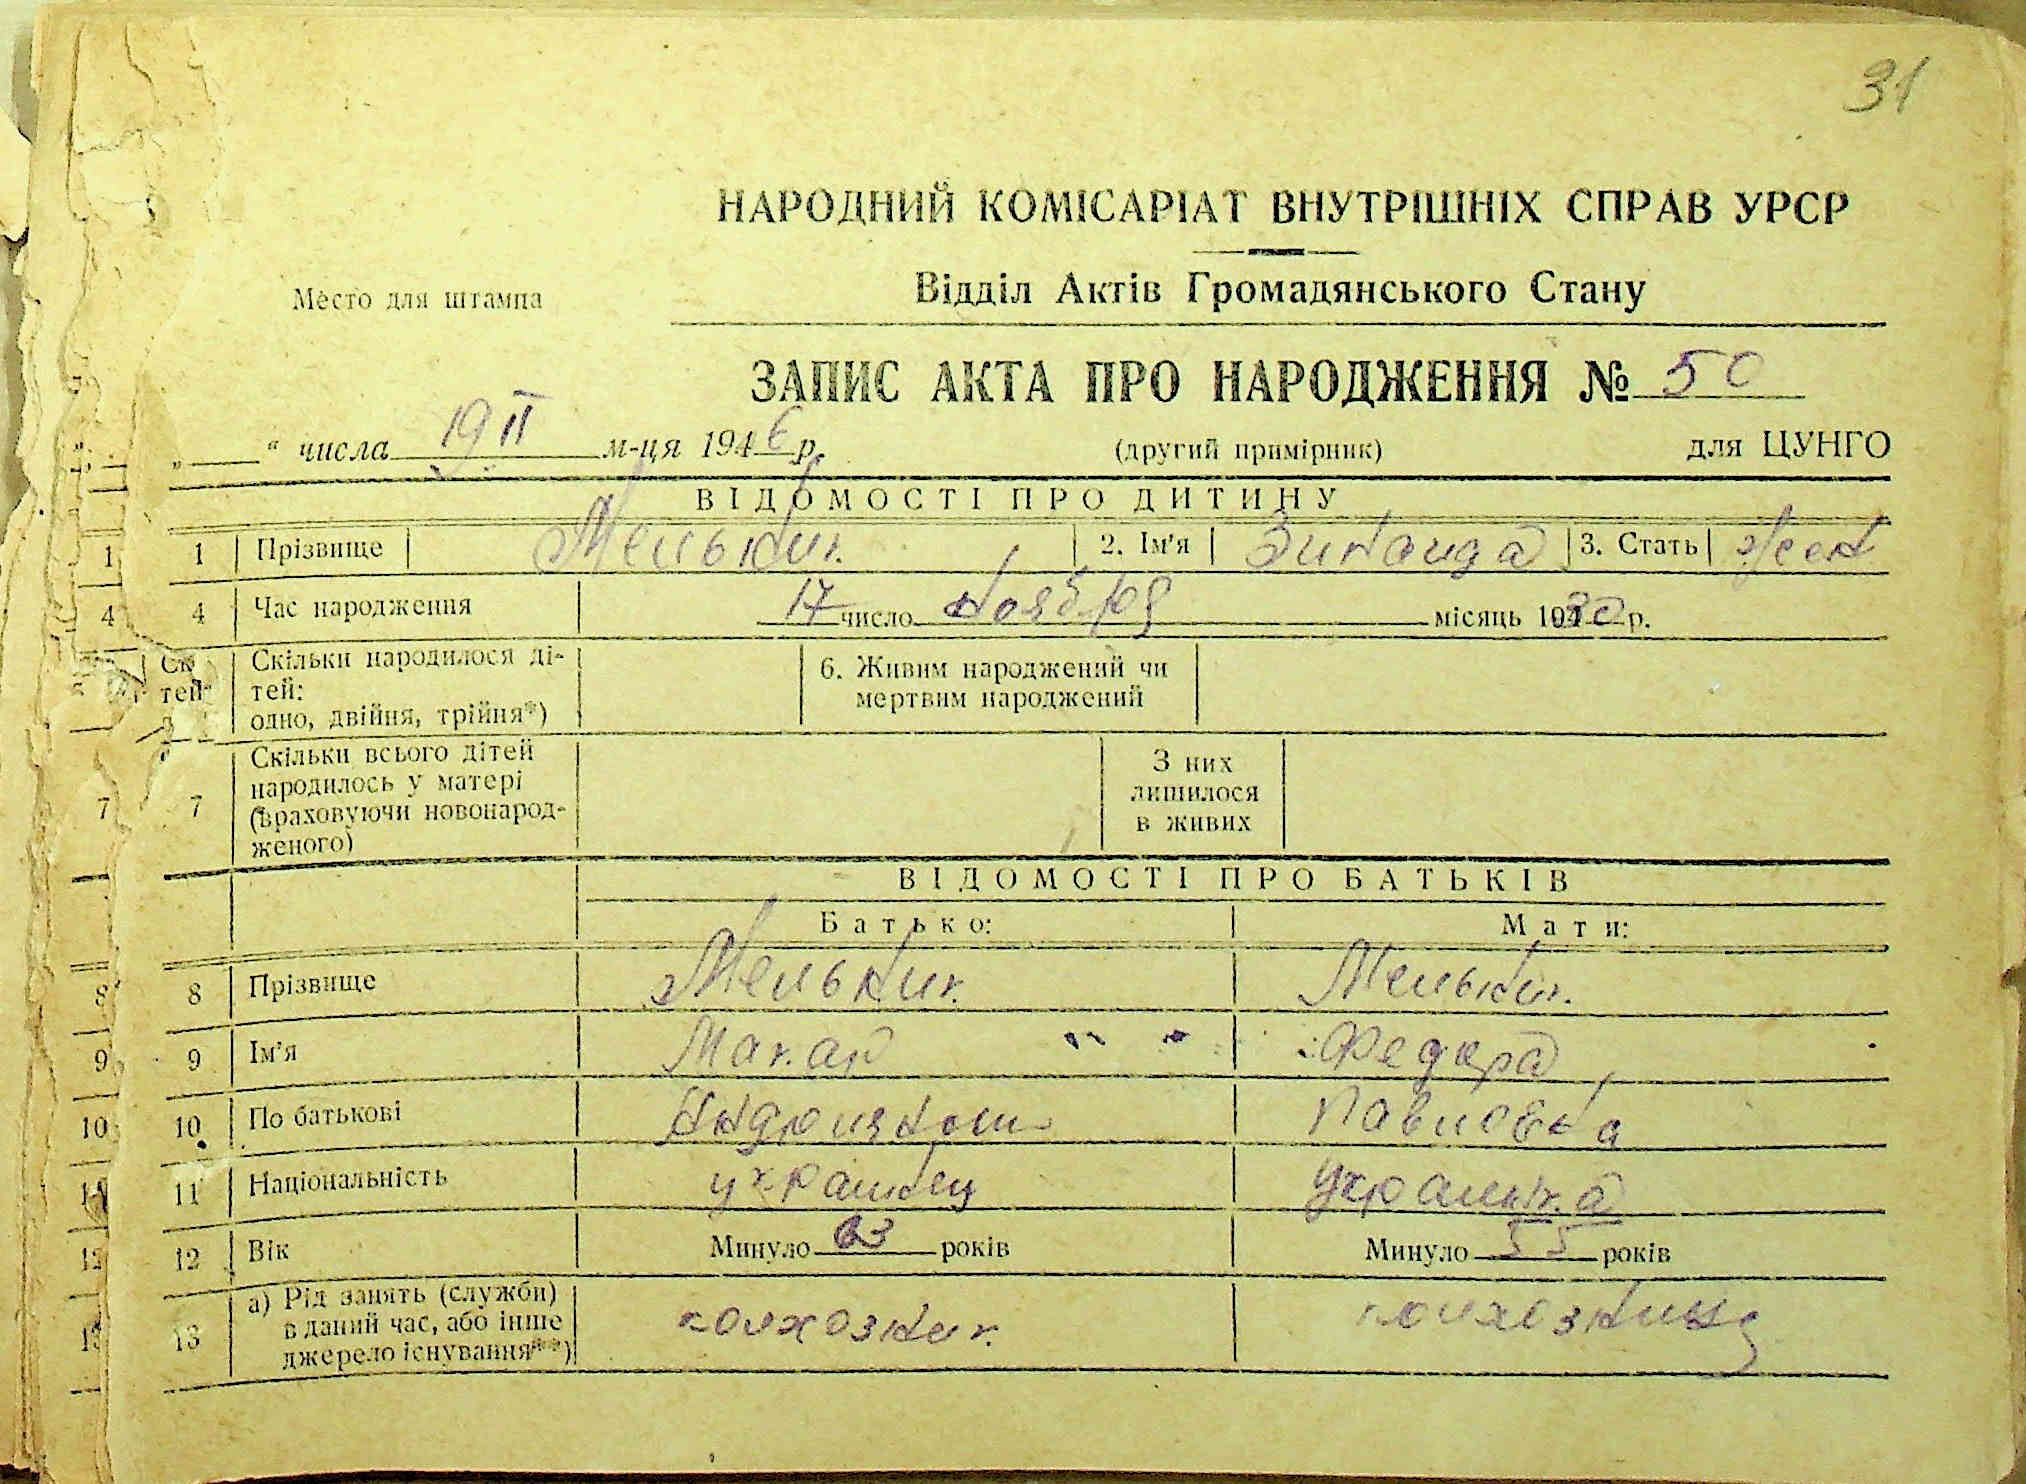 31
НАРОДНИЙ КОМІСАРІАТ ВНУТРІШНІХ СПРАВ УРСР
Место для штампа
Відділ Актів Громадянського Стану
ЗАПИС АКТА ПРО НАРОДЖЕННЯ № 50
„ “ числа 19 II м-ця 1946 р. (другий примірник) для ЦУНГО
ВІДОМОСТІ ПРО ДИТИНУ
1 1 Прізвище Мельник 2. Ім'я Зинаида 3. Стать жен
4 4 Час народження 17 число ноября місяць 1930 р.
Ск Скільки народилося ді-
тей тей:
одно, двійня, трійня*)
6. Живим народжений чи
мертвим народжений
7 7 Скільки всього дітей
народилось у матері
(враховуючи новонарод-
женого)
З них
лишилося
в живих
ВІДОМОСТІ ПРО БАТЬКІВ
Батько: Мати:
8 8 Прізвище Мельник Мельник
9 9 Ім'я Макар Федора
10 10 По батькові Андриянович Павловна
11 11 Національність украинец украинка
12 12 Вік Минуло 63 років Минуло 55 років
13 13 а) Рід занять (служби)
в даний час, або інше
джерело існування**)
колхозник колхозница